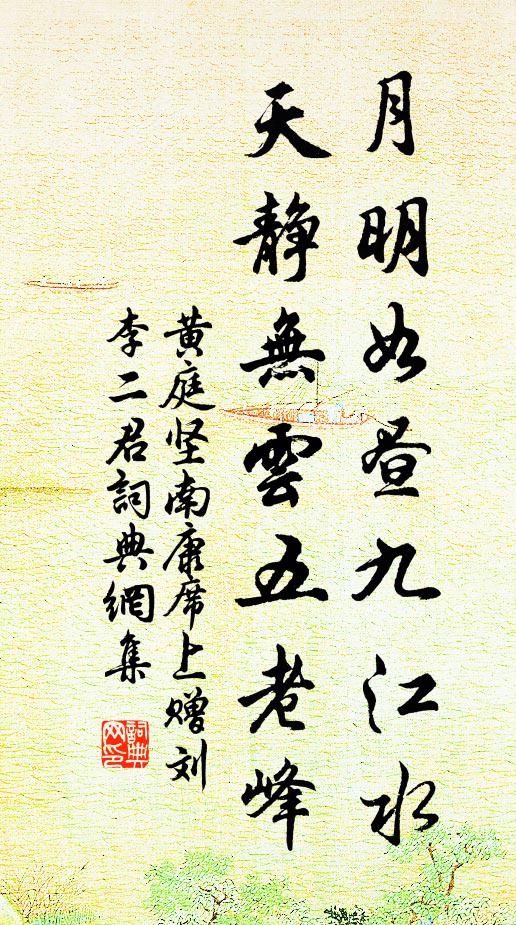 月明如昼九江水
天静無雲五老峰
黄庭坚南康席上赠刘
李二君詞典網集
詞典
网印